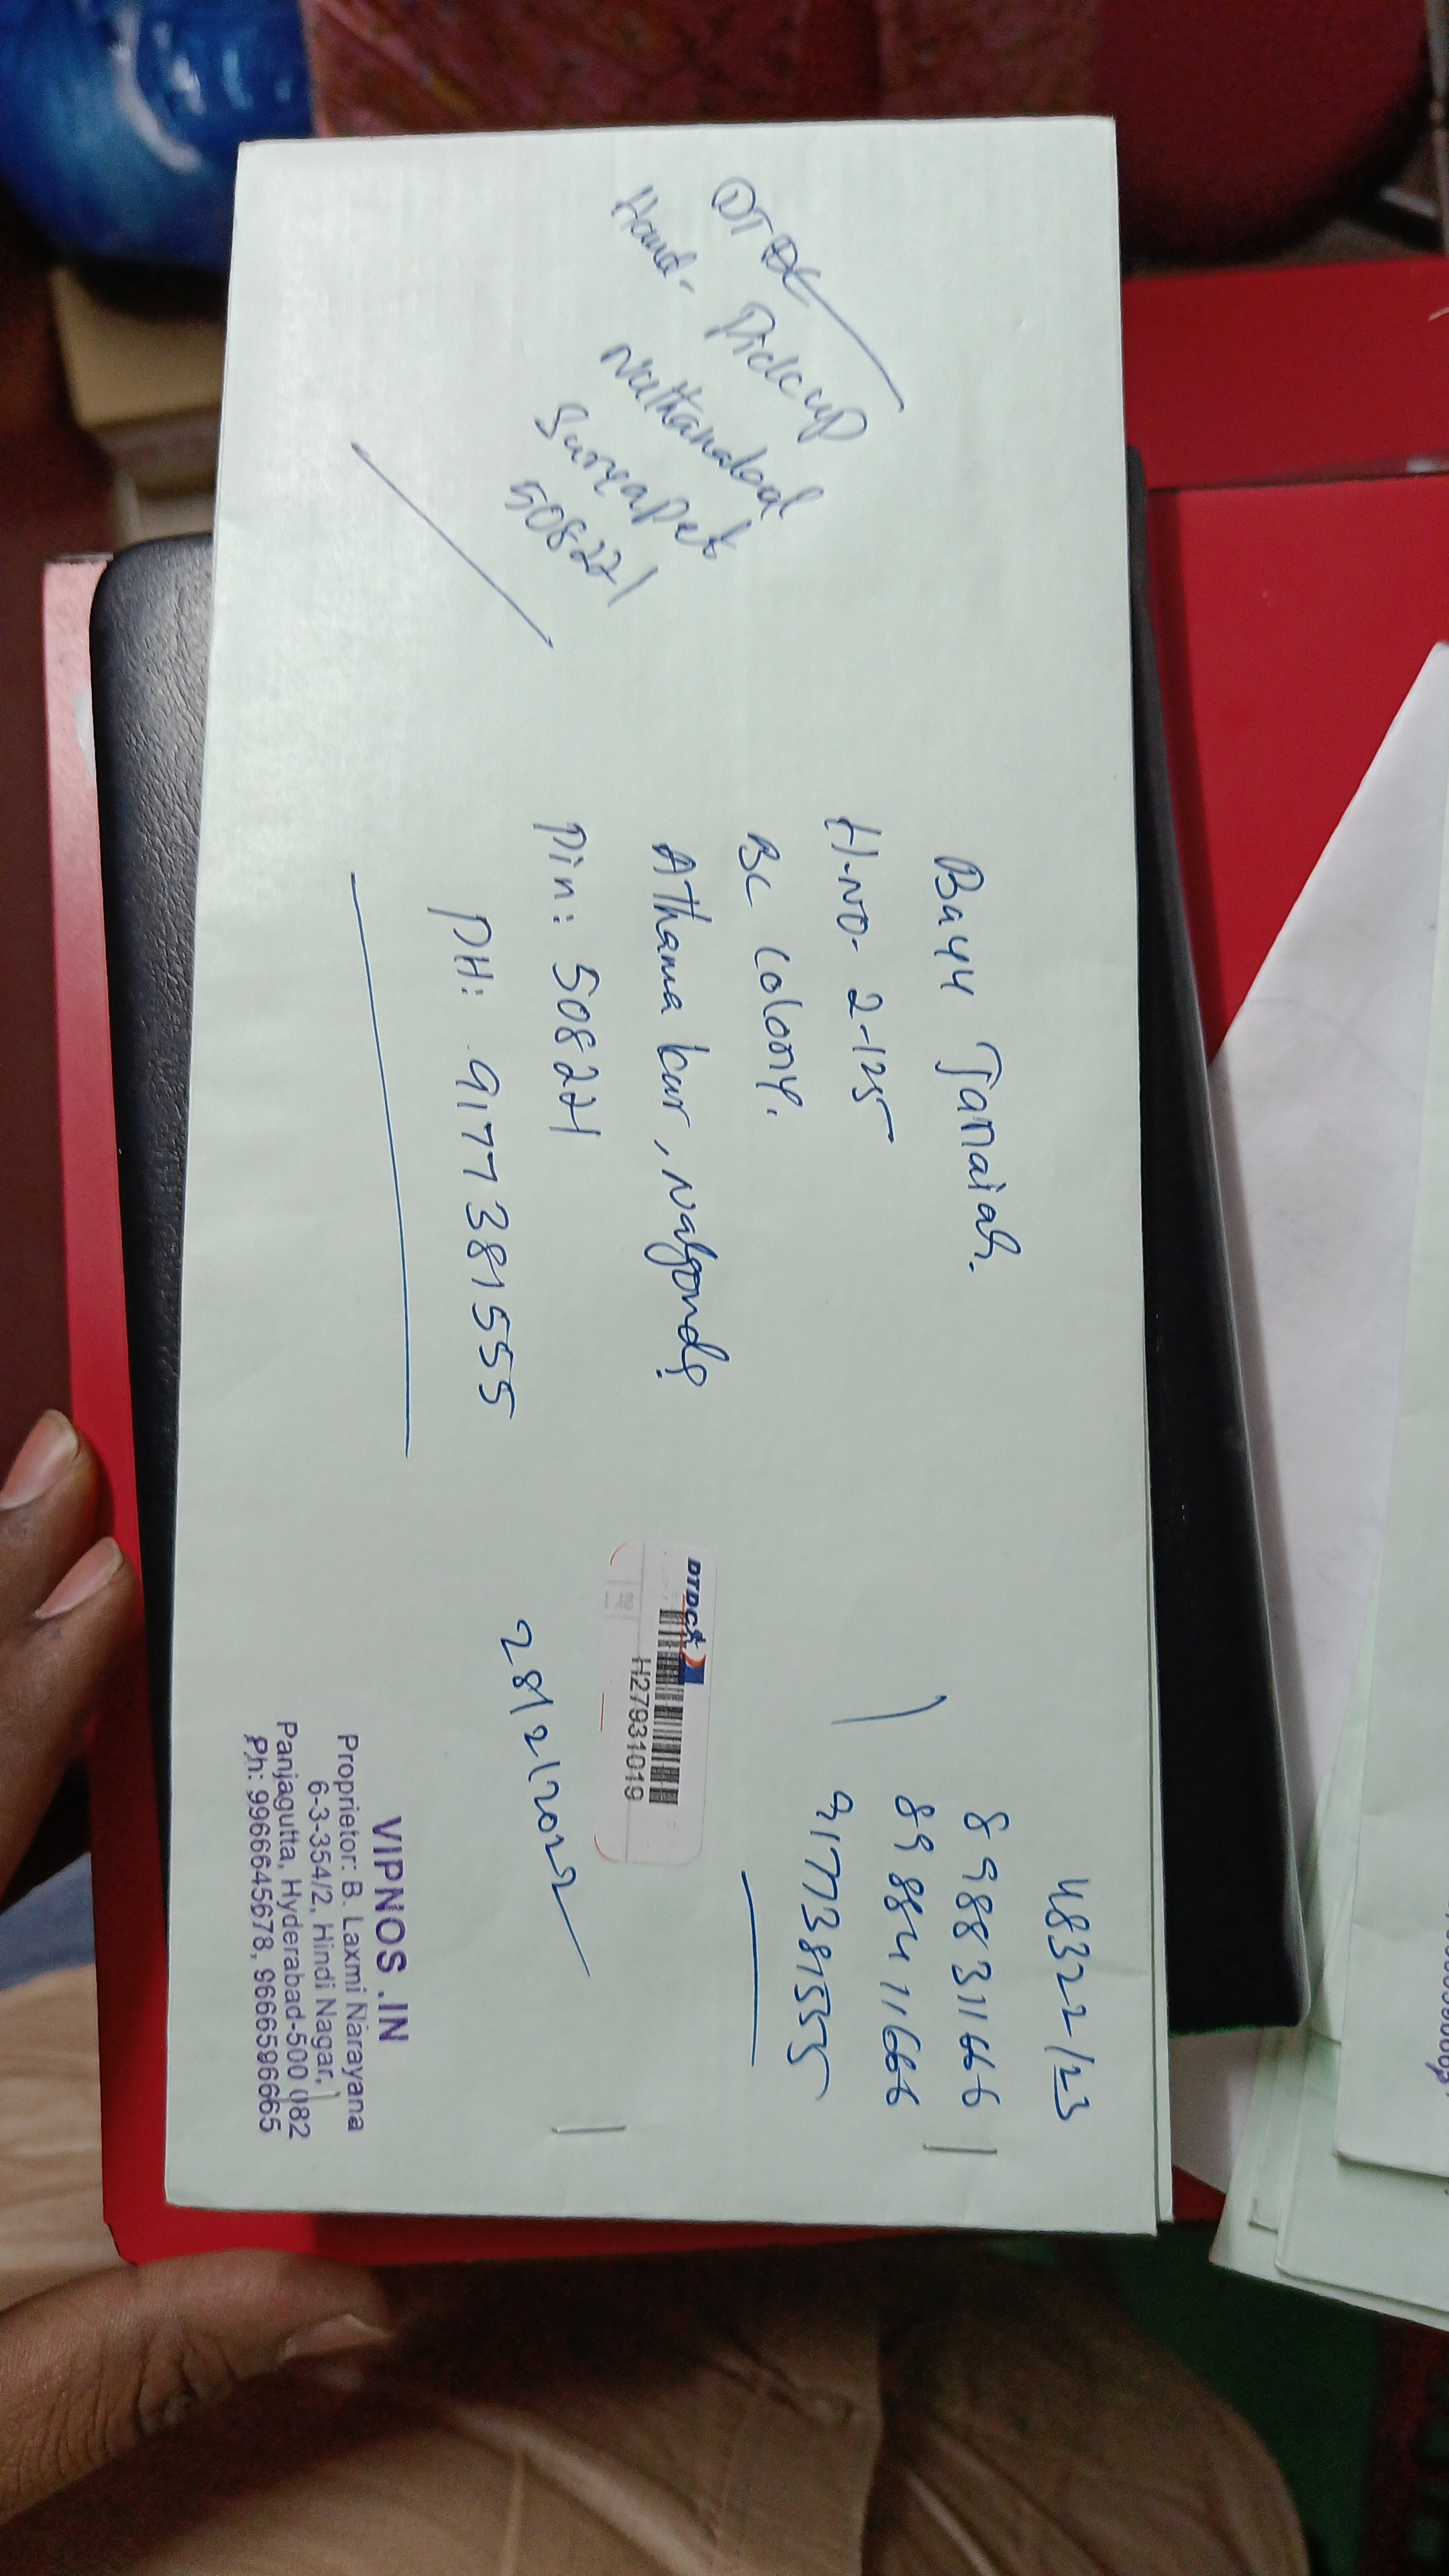 DTDC
Hand. Pickup
Nuthanakal
Suryapet
508221
Bayy Janaiah.
H-NO- 2-125
BC Colony.
Athamakur, Nalgonda
Pin: 508221
PH: 9177381555
48322/23
8988311666
8988411666
9177381555
DTDC
H27931019
28/2/2022
VIPNOS .IN
Proprietor: B. Laxmi Narayana
6-3-354/2, Hindi Nagar,
Panjagutta, Hyderabad-500 082
Ph: 9966645678, 9666596665